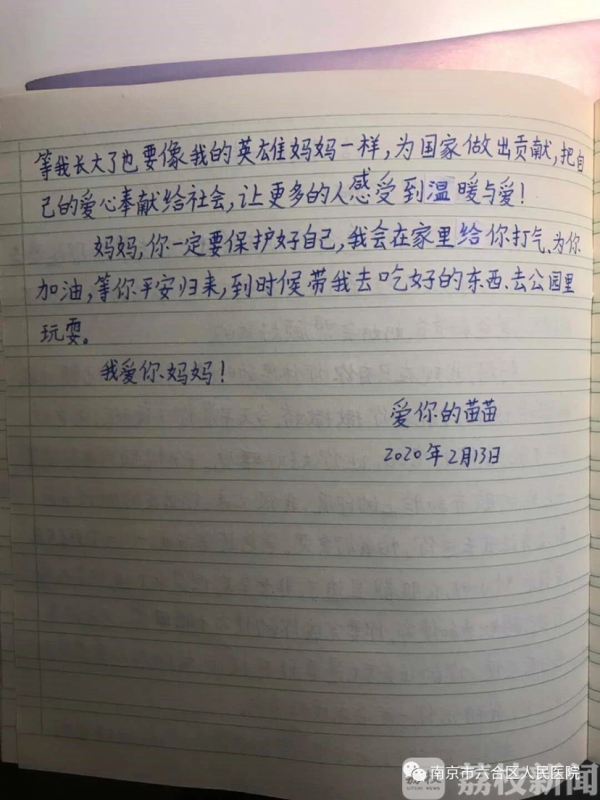 等我长大了也要像我的英雄妈妈一样,为国家做出贡献,把自
己的爱心奉献给社会,让更多的人感受到温暖与爱!
妈妈,你一定要保护好自己,我会在家里给你打气、为你
加油,等你平安归来,到时候带我去吃好的东西、去公园里
玩耍。
我爱你妈妈!
爱你的苗苗
2020年2月13日
荔枝新闻
南京市六合区人民医院